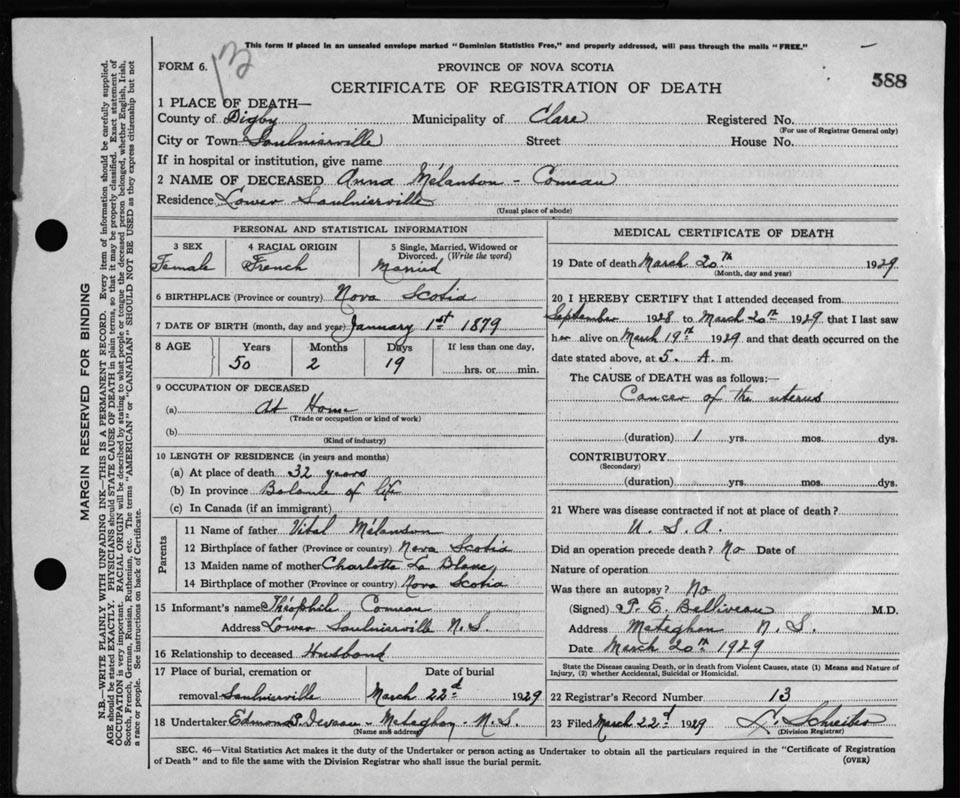 This form if placed in an unsealed envelope marked "Dominion Statistics Free," and properly addressed, will pass through the mails "FREE."
FORM 6.
13
PROVINCE OF NOVA SCOTIA
CERTIFICATE OF REGISTRATION OF DEATH
588
1 PLACE OF DEATH—
County of Digby Municipality of Clare Registered No.
(For use of Registrar General only)
City or Town Saulnierville Street House No.
If in hospital or institution, give name
2 NAME OF DECEASED Anna Mélanson - Comeau
Residence Lower Saulnierville
(Usual place of abode)
PERSONAL AND STATISTICAL INFORMATION
3 SEX 4 RACIAL ORIGIN 5 Single, Married, Widowed or Divorced. (Write the word)
Female French Married
6 BIRTHPLACE (Province or country) Nova Scotia
7 DATE OF BIRTH (month, day and year) January 1st 1879
8 AGE Years Months Days If less than one day,
50 2 19 hrs. or min.
9 OCCUPATION OF DECEASED
(a) At Home
(Trade or occupation or kind of work)
(b)
(Kind of industry)
10 LENGTH OF RESIDENCE (in years and months)
(a) At place of death 32 years
(b) In province Balance of life
(c) In Canada (if an immigrant)
Parents
11 Name of father Vital Mélanson
12 Birthplace of father (Province or country) Nova Scotia
13 Maiden name of mother Charlotte La Blanc
14 Birthplace of mother (Province or country) Nova Scotia
15 Informant's name Théophile Comeau
Address Lower Saulnierville N.S.
16 Relationship to deceased Husband
17 Place of burial, cremation or Date of burial
removal Saulnierville March 22d 1929
18 Undertaker Edmond Deveau - Meteghan N.S.
(Name and address)
MEDICAL CERTIFICATE OF DEATH
19 Date of death March 20th 1929
(Month, day and year)
20 I HEREBY CERTIFY that I attended deceased from
September 1928 to March 20th 1929 that I last saw
her alive on March 19th 1929 and that death occurred on the
date stated above, at 5 A. m.
The CAUSE of DEATH was as follows:—
Cancer of the uterus
(duration) 1 yrs. mos. dys.
CONTRIBUTORY
(Secondary)
(duration) yrs. mos. dys.
21 Where was disease contracted if not at place of death?
U. S. A.
Did an operation precede death? No Date of
Nature of operation
Was there an autopsy? No
(Signed) P. E. Belliveau M.D.
Address Meteghan N.S.
Date March 20th 1929
State the Disease causing Death, or in death from Violent Causes, state (1) Means and Nature of
Injury, (2) whether Accidental, Suicidal or Homicidal.
22 Registrar's Record Number 13
23 Filed March 22d 1929
(Division Registrar)
SEC. 46—Vital Statistics Act makes it the duty of the Undertaker or person acting as Undertaker to obtain all the particulars required in the "Certificate of Registration
of Death" and to file the same with the Division Registrar who shall issue the burial permit.
(OVER)
MARGIN RESERVED FOR BINDING
N.B.—WRITE PLAINLY WITH UNFADING INK—THIS IS A PERMANENT RECORD. Every item of information should be carefully supplied.
AGE should be stated EXACTLY. PHYSICIANS should STATE CAUSE OF DEATH in plain terms, so that it may be properly classified. Exact statement of
OCCUPATION is very important. RACIAL ORIGIN will be described by stating to what people or tongue the deceased person belonged, whether English, Irish,
Scotch, French, German, Russian, Ruthenian, etc. The terms "AMERICAN" or "CANADIAN" SHOULD NOT BE USED as they express citizenship but not
a race or people. See instructions on back of Certificate.